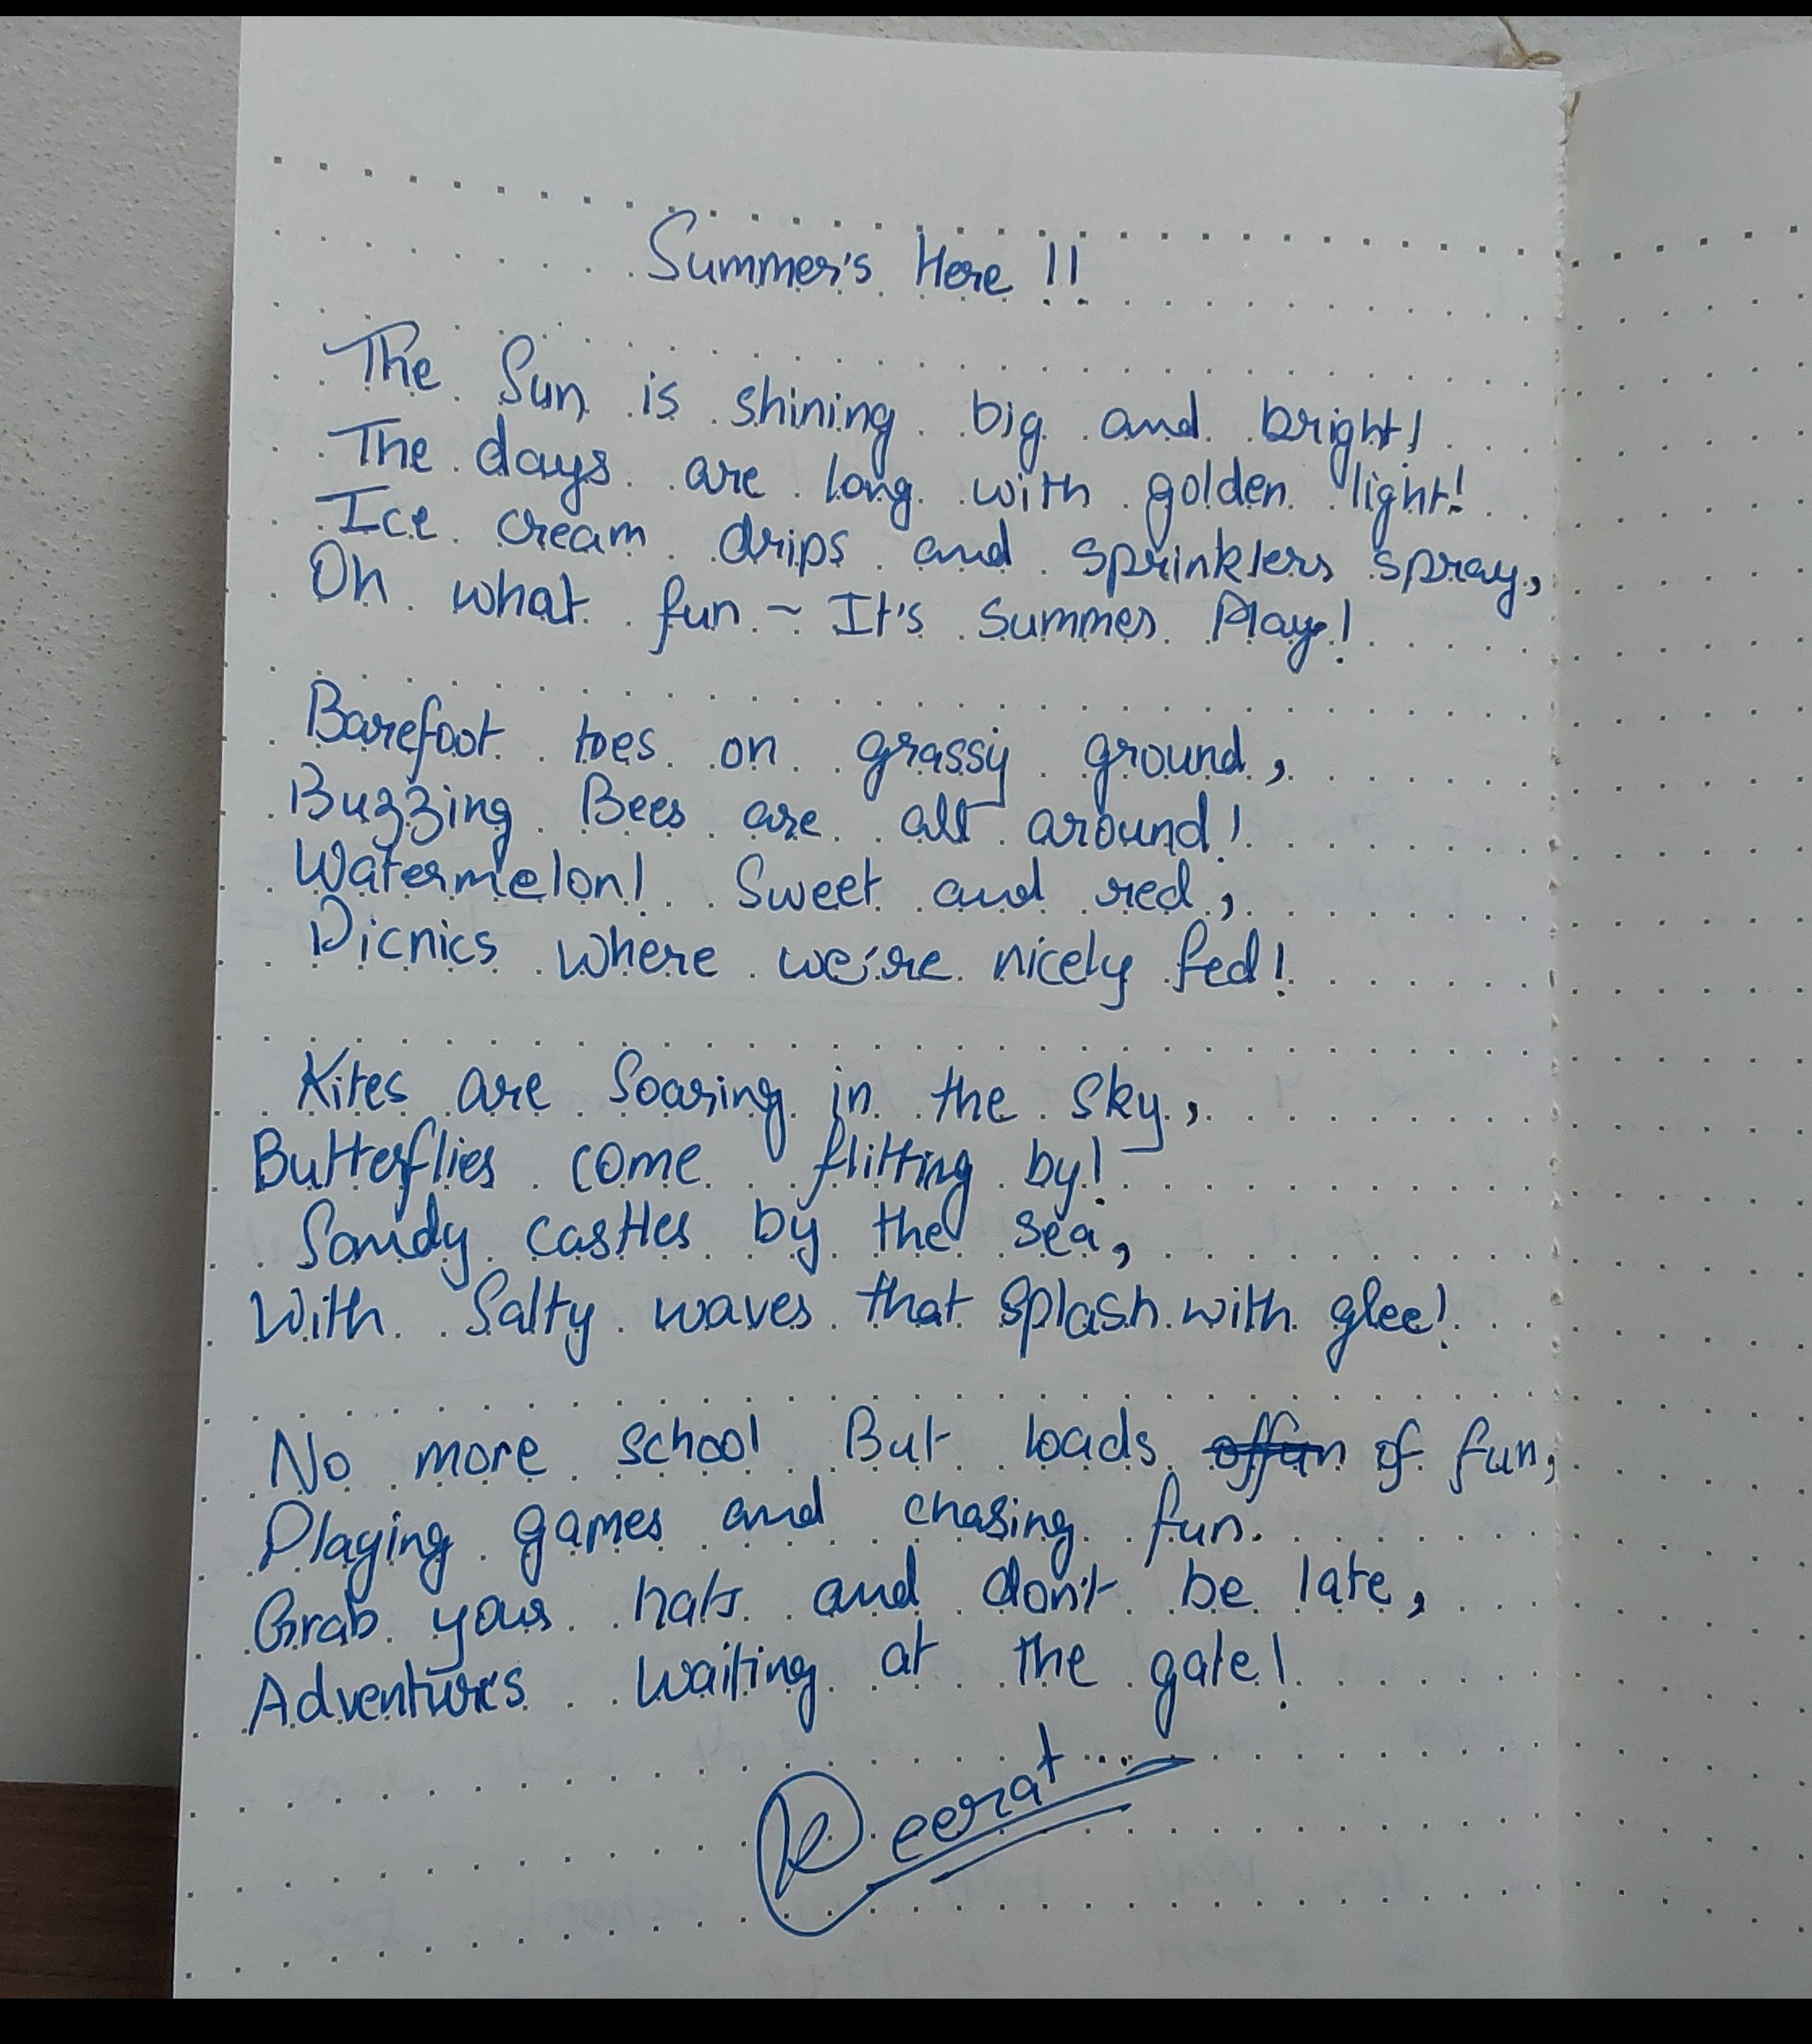 Summer's Here !!
The Sun is shining big and bright!
The days are long with golden light!
Ice cream drips and sprinklers spray,
Oh what fun ~ It's Summer Play!
Barefoot toes on grassy ground,
Buzzing Bees are all around!
Watermelon! Sweet and red,
Picnics where we're nicely fed!
Kites are Soaring in the sky,
Butterflies come flitting by!
Sandy castles by the sea,
With Salty waves that splash with glee!
No more school But loads of fun,
Playing games and chasing fun.
Grab your hats and don't be late,
Adventures waiting at the gate!